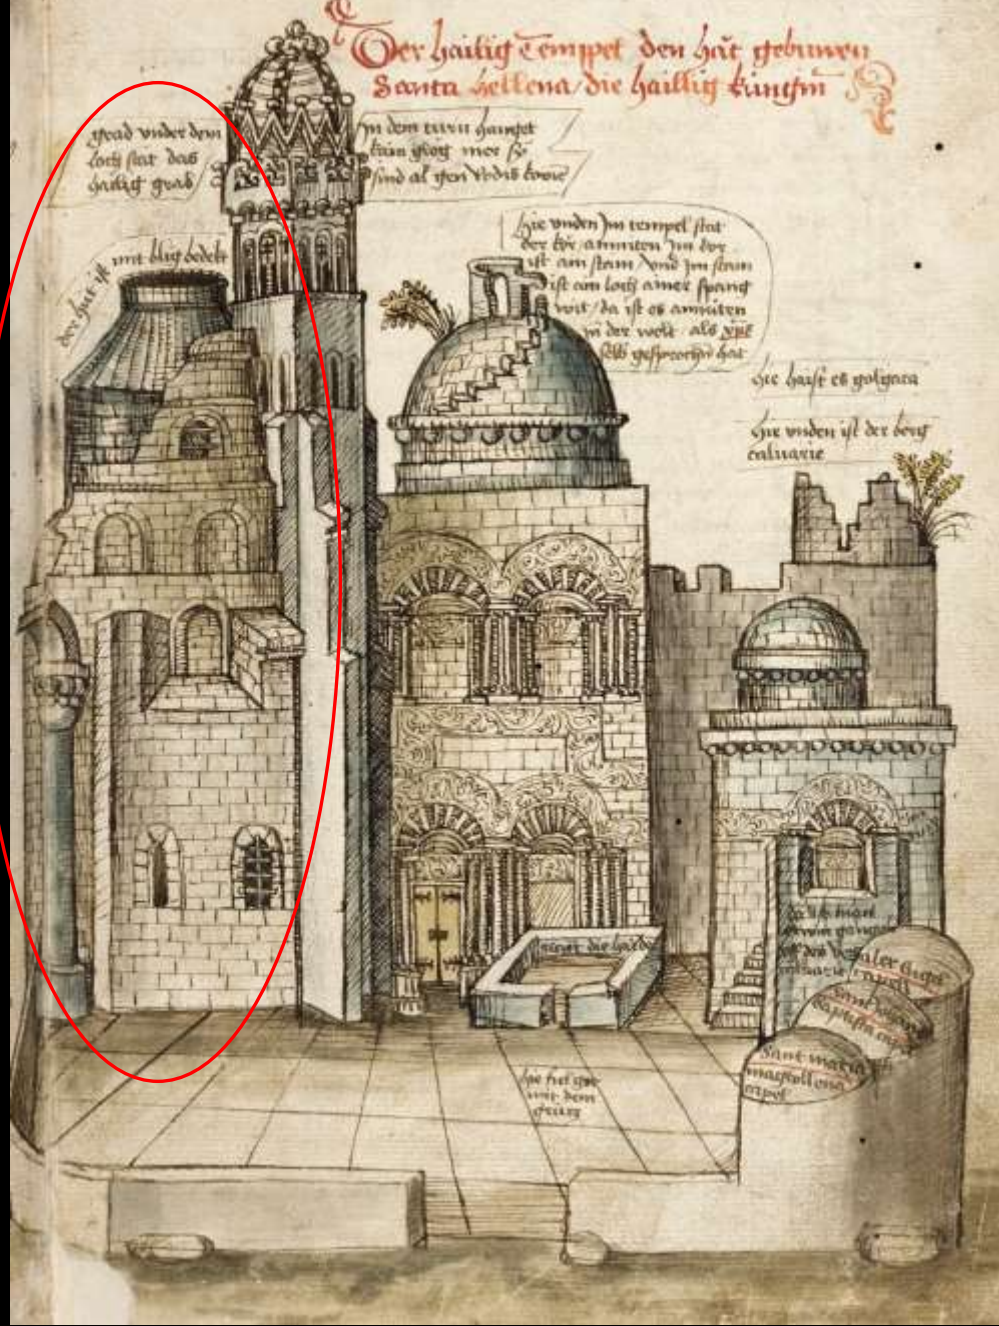 Der hailig Tempel den hat gebuwen
Santa Hellena die haillig küngin
grad vnder dem
loch stat das
hailig grab
In dem turn hanget
kain glog mer sy
sind al gen Rodis komē
der hut ist mit bliy bedekt
Hie vnden Im tempel stat
der kor amitten Im kor
ist ain stain vnd Im stain
ist ain loch ainer spang
wit da ist es amitten
in der welt als xps
selb gesprochn hat
Hie haist es golgata
Hie vnden ist der berg
caluarie
man
der
Hie fiel
mit dem
crütz
capel
Sant maria
magdollena
capel